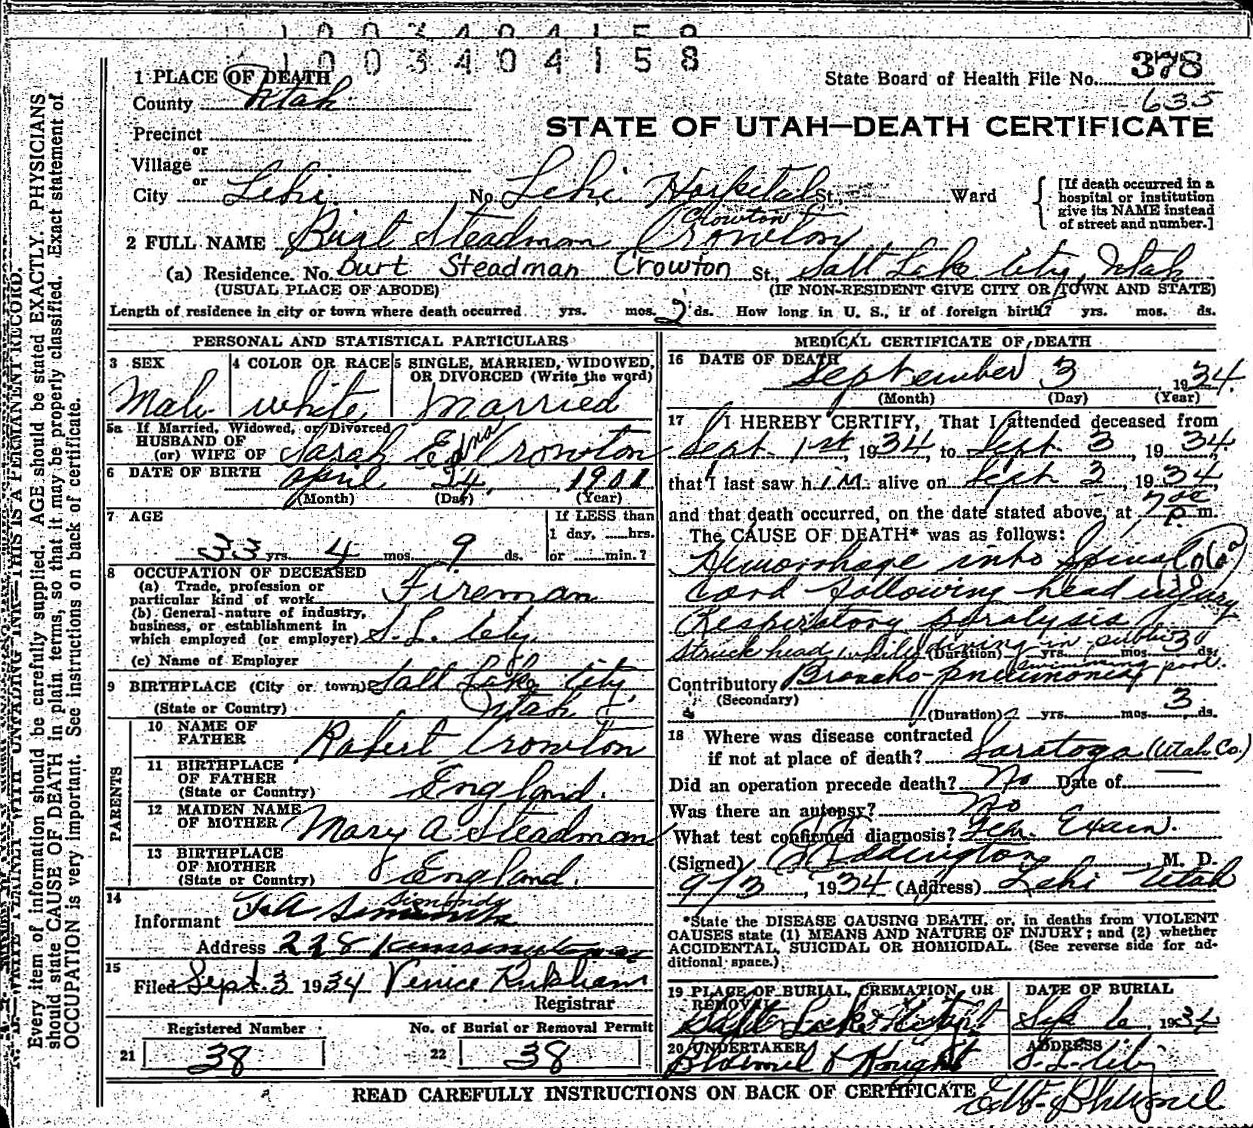 1003404158
1003404158
1 PLACE OF DEATH
State Board of Health File No. 378
County Utah
635
STATE OF UTAH—DEATH CERTIFICATE
Precinct
or
Village
or
City Lehi No. Lehi Hospital St., Ward
[If death occurred in a
hospital or institution
give its NAME instead
of street and number.]
Crowton
2 FULL NAME Burt Steadman Crowton
(a) Residence. No. Burt Steadman Crowton St., Salt Lake City, Utah
(USUAL PLACE OF ABODE) (IF NON-RESIDENT GIVE CITY OR TOWN AND STATE)
Length of residence in city or town where death occurred yrs. mos. 2 ds. How long in U. S., if of foreign birth? yrs. mos. ds.
PERSONAL AND STATISTICAL PARTICULARS
3 SEX 4 COLOR OR RACE 5 SINGLE, MARRIED, WIDOWED,
OR DIVORCED (Write the word)
Male white Married
5a If Married, Widowed, or Divorced
HUSBAND OF
(or) WIFE OF Sarah Edna Crowton
6 DATE OF BIRTH April 24, 1901
(Month) (Day) (Year)
7 AGE If LESS than
1 day, hrs.
33 yrs. 4 mos. 9 ds. or min.?
8 OCCUPATION OF DECEASED
(a) Trade, profession or
particular kind of work Fireman
(b) General nature of industry,
business, or establishment in
which employed (or employer) S. L. City
(c) Name of Employer
9 BIRTHPLACE (City or town) Salt Lake City
(State or Country) Utah
PARENTS
10 NAME OF
FATHER Robert Crowton
11 BIRTHPLACE
OF FATHER
(State or Country) England.
12 MAIDEN NAME
OF MOTHER Mary A Steadman
13 BIRTHPLACE
OF MOTHER
(State or Country) England.
14
Simonds
Informant
Address 228
15
Filed Sept. 3 1934 Venice
Registrar
Registered Number No. of Burial or Removal Permit
21 38 22 38
MEDICAL CERTIFICATE OF DEATH
16 DATE OF DEATH
September 3, 1934.
(Month) (Day) (Year)
17 I HEREBY CERTIFY, That I attended deceased from
Sept 1st, 1934, to Sept 3, 1934,
that I last saw h im alive on Sept 3, 1934,
and that death occurred, on the date stated above, at 7 P. m.
The CAUSE OF DEATH* was as follows:
Hemorrhage into Spinal
Cord following head injury
Respiratory paralysis
Struck head while diving in public
(Duration) yrs. mos. 3 ds.
swimming pool.
Contributory Broncho-pneumonia
(Secondary)
(Duration) yrs. mos. 3 ds.
18 Where was disease contracted
if not at place of death? Saratoga (Utah Co.)
Did an operation precede death? No Date of —
Was there an autopsy? No
What test confirmed diagnosis? Exam.
(Signed) Eddington, M. D.
9/3, 1934 (Address) Lehi Utah
*State the DISEASE CAUSING DEATH, or, in deaths from VIOLENT
CAUSES state (1) MEANS AND NATURE OF INJURY; and (2) whether
ACCIDENTAL, SUICIDAL OR HOMICIDAL. (See reverse side for ad-
ditional space.)
19 PLACE OF BURIAL, CREMATION, OR
REMOVAL
DATE OF BURIAL
Salt Lake Sept 6 1934
20 UNDERTAKER ADDRESS
Knight S. L. City
READ CAREFULLY INSTRUCTIONS ON BACK OF CERTIFICATE
N. B.—WRITE PLAINLY WITH UNFADING INK—THIS IS A PERMANENT RECORD.
Every item of information should be carefully supplied. AGE should be stated EXACTLY. PHYSICIANS
should state CAUSE OF DEATH in plain terms, so that it may be properly classified. Exact statement of
OCCUPATION is very important. See instructions on back of certificate.